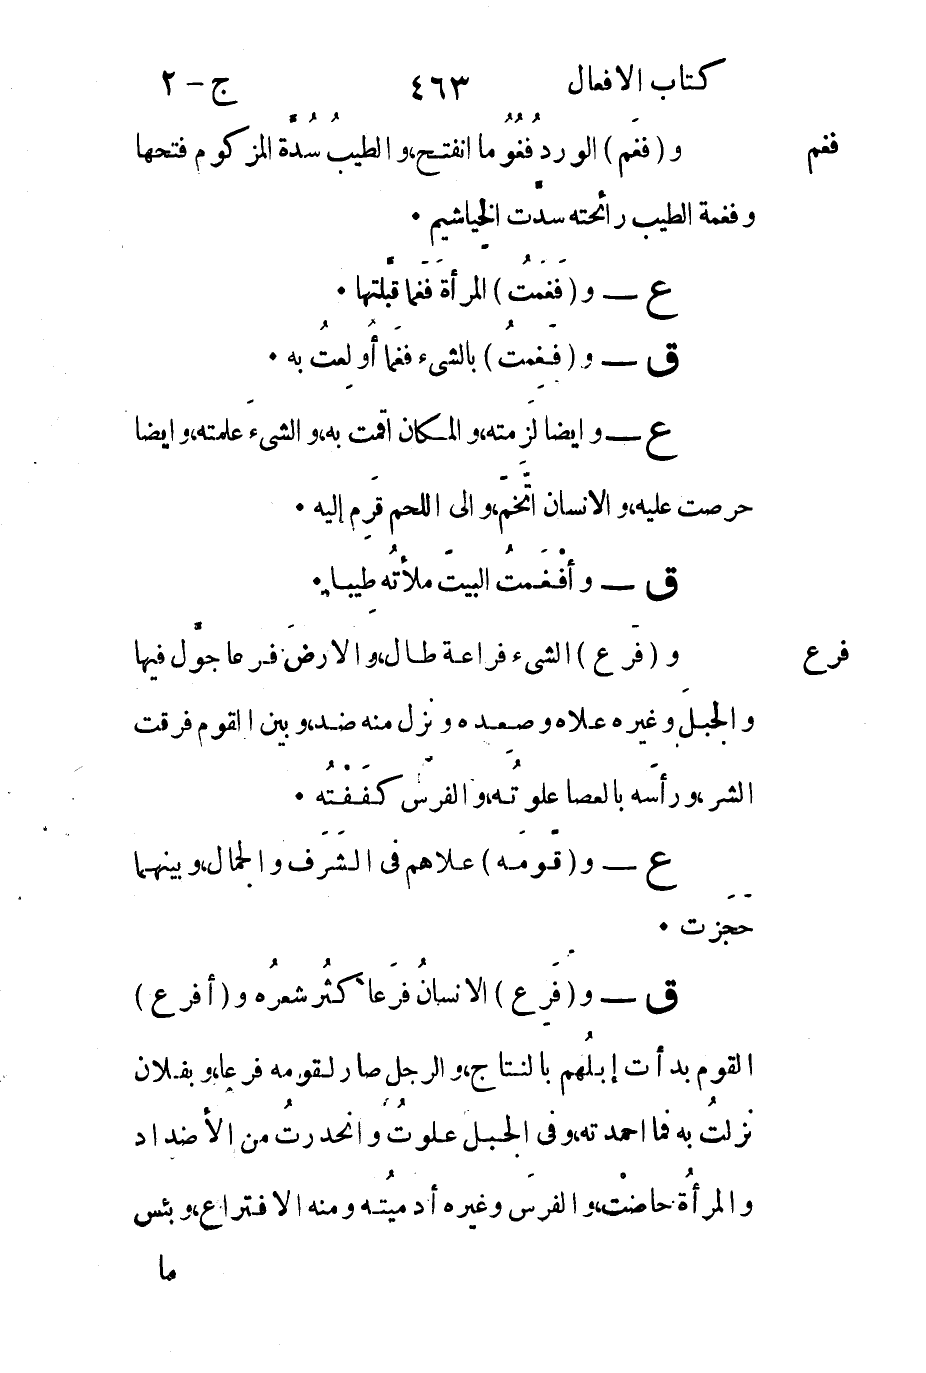 كتاب الافعال ٤٦٣ ج - ٢
فغم و (فغم) الوردُ فُغُوُما انفتح، والطيبُ سُدَّة المزكوم فتحها
وفغمة الطيب رائحته سدَّت الخياشيم •
ع — و (فَغَمَتُ) المرأة فَغَما قبَّلتها •
ق — و (فَغِمتُ) بالشىء فغَما أُولِعتُ به •
ع — وايضا لزَمته، والمكان اقمت به، والشىءَ علمته، وايضا
حرصت عليه، والانسان اتَّخَّم، والى اللحم قَرِم إليه •
ق — وأفْغَمتُ البيتَ ملأتُه طِيبا •
فرع و (فَرَع) الشىء فراعة طال، والارضَ فرعا جوَّل فيها
والجبلَ وغيره علاه وصعده ونزل منه ضد، وبين القوم فرقت
الشر، ورأسَه بالعصا علوتُه، والفرسَ كَفَفْتُه •
ع — و (قَّومَه) علاهم فى الشَرَف والجمال، وبينهما
حَجَزت •
ق — و (فَرِع) الانسانُ فَرَعا كثُر شعرُه و (أفرع)
القوم بدأت إبلُهم بالنتاج، والرجل صار لقومه فرعا، وبفلان
نزلتُ به فما احمدته، وفى الجبل علوتُ وانحدرتُ من الأضداد
والمرأةُ حاضتْ، والفرسَ وغيره أدميتُه ومنه الافتراع، وبئس
ما